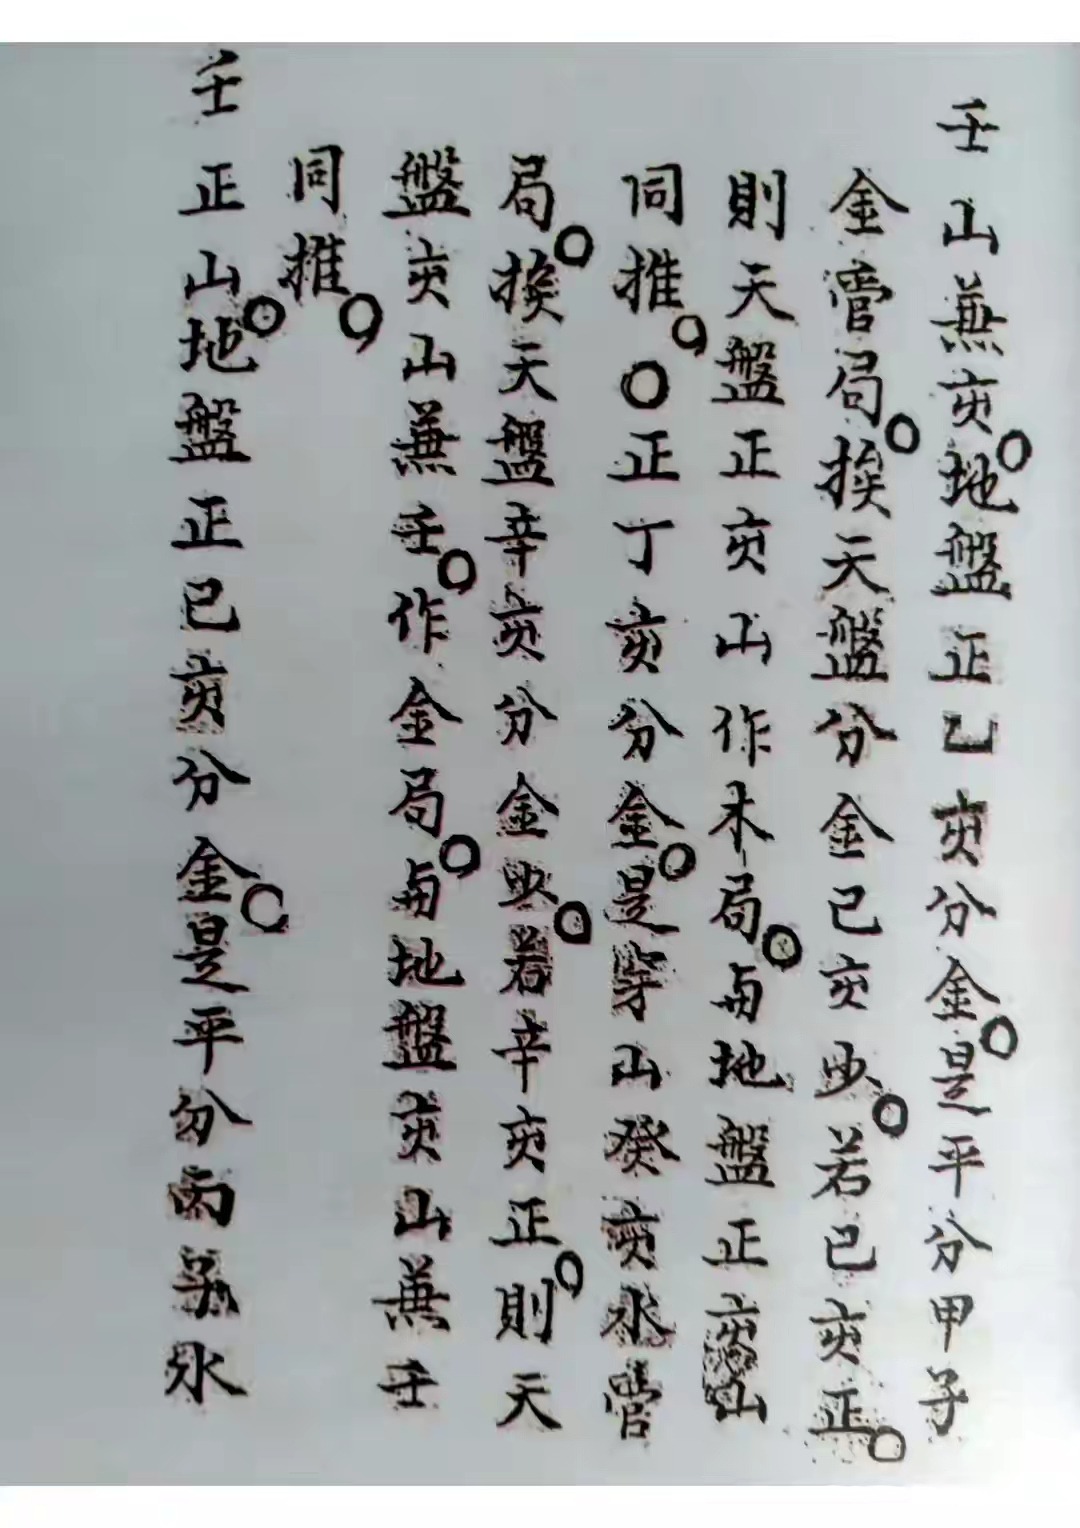 壬山兼亥。地盤正乙亥分金。是平分甲子
金管局。挨天盤分金己亥少。若己亥正。
則天盤正亥山作木局。与地盤正亥山
同推。○正丁亥分金。是穿山癸亥水管
局。挨天盤辛亥分金少。若辛亥正。則天
盤亥山兼壬。作金局。与地盤亥山兼壬
同推。
壬正山。地盤正己亥分金。是平分丙子水